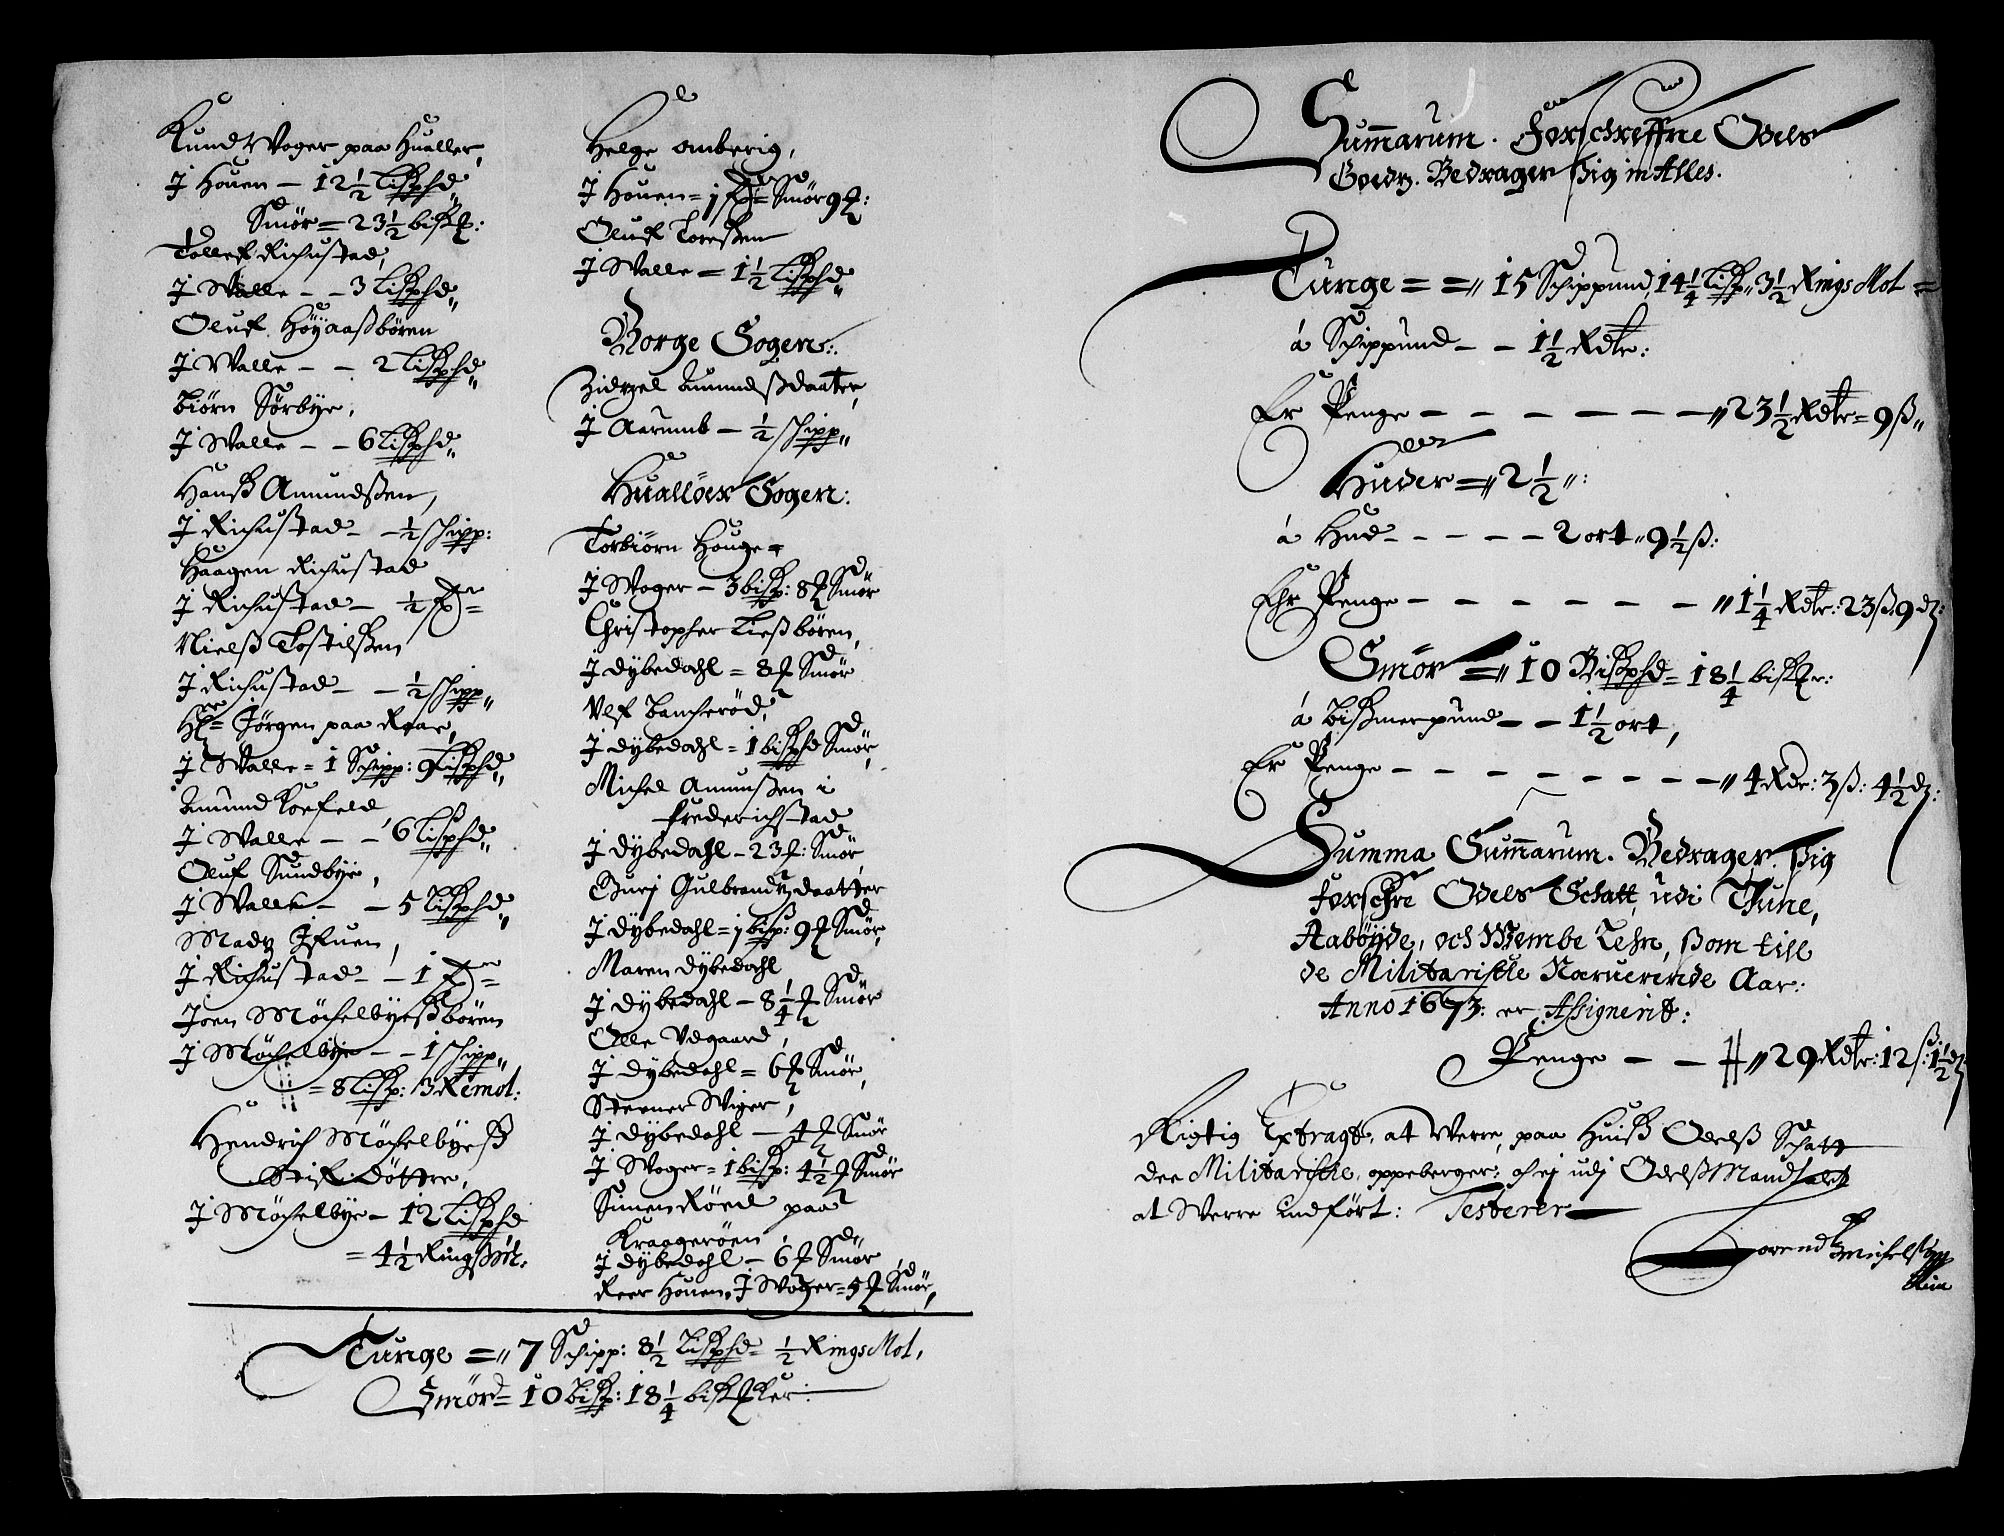 Knud Woger paa Hualler,
J Houen — 12½ Lispd„
Smör = 23½ bisk:
Tollef Richustad,
J Walle - - 3 Lispd„
Oluf Höÿaasbören
J Walle - - 2 Lispd„
Biörn Sörbÿe,
J Walle - - 6 Lispd„
Hanß Amundßen,
J Richustad - - ½ schipp:
Haagen Richustad
J Richustad - ½
Nielß Tostilßen
J Richustad - - ½ schipp„
Hr = Jörgen paa Roar,
J Walle = 1 Schipp: 9 Lispd„
Amund Korfeld,
J Walle - - 6 Lispd„
Oluf Sundbÿe,
J Walle - - 5 Lispd„
Madz Ifuen,
J Richustad - 1
Joen Möchelbyeßbören
J Möchelbÿe - - 1 schipp„
= 8 Lisp: 3 Remol:
Hendrich Möchelbÿeß
Stif Döttre,
J Möchelbÿe - 12 Lispd
= 4½ Ringßm.
Helge Omberig,
J Houen = 1 = Smör 9
Oluf Toreßen
J Walle = 1½ Lispd„
Borge Sogen:
Zidzel Amundßdaater,
J Aarumb - ½ schipp„
Hualöer Sogen:
Torbiörn Houge =
J Woger - 3 bisp: 8 Smör
Christopher Liesbören,
J Dÿbedahl = 8 Smör
Ulf Bancheröd,
J Dÿbedahl = 1 bispd Smör,
Michel Amunßen i
Frederichstad
J Dÿbedahl - 23: Smör
Gurj Gulbrandtzdaatter
J Dÿbedahl = 1 bisp: 9 Smör,
Maren Dÿbedahl
J Dÿbedahl - 8¼ Smör
Olle Udgaard,
J Dÿbedahl = 6 Smör,
Steener Wiger,
J Dÿbedahl - 4 Smör
J Woger = 1 bisp: 4½ Smör
Simen Röed paa
Kraageröen
J Dÿbedahl - 6 Smör
Reer Houen, J Woger = 5 Smör,
Tunge =„ 7 Schipp: 8½ Lispd = ½ Rings Mol,
Smör = 10 bisp: 18¼ bisker:
Summarum. Forschreffne Odels
Goedz. Bedrager ßig in Alles.
Tunge = =„ 15 Schippund, 14¼ Lisp„ 3½ Rings Mol =
á Schippund - - 1½ Rdlr:
Er Penge - - - - - - -„ 23½ Rdlr = 9 ß„
Huder =„ 2½„:
á Hud - - - - - 2 ort„ 9½ ß:
Ehr Penge - - - - - - -„ 1¼ Rdlr: 23 ß. 9 d:
Smör =„ 10 Bispd = 18¼ bisker:
á bißmerpund - - 1½ ort,
Er Penge - - - - - - - -„ 4 Rdr: 3 ß: 4½ d:
Summa Summarum. Bedrager ßig
forschre Odels Schatt, udi Thune,
Aabÿgde, och Wembe Lehn, ßom till
de Militarische Naruerende Aar:
Anno 1673: er Assignerit:
Penge - - „ 29 Rdlr: 12 ß: 1½ d
Rigtig Extragt, at Werre, paa Huiß Odelß Schatt
der Militarische, oppeberger: ohj udj Odelß Mandtalet
at Werre Indfört: Testerer